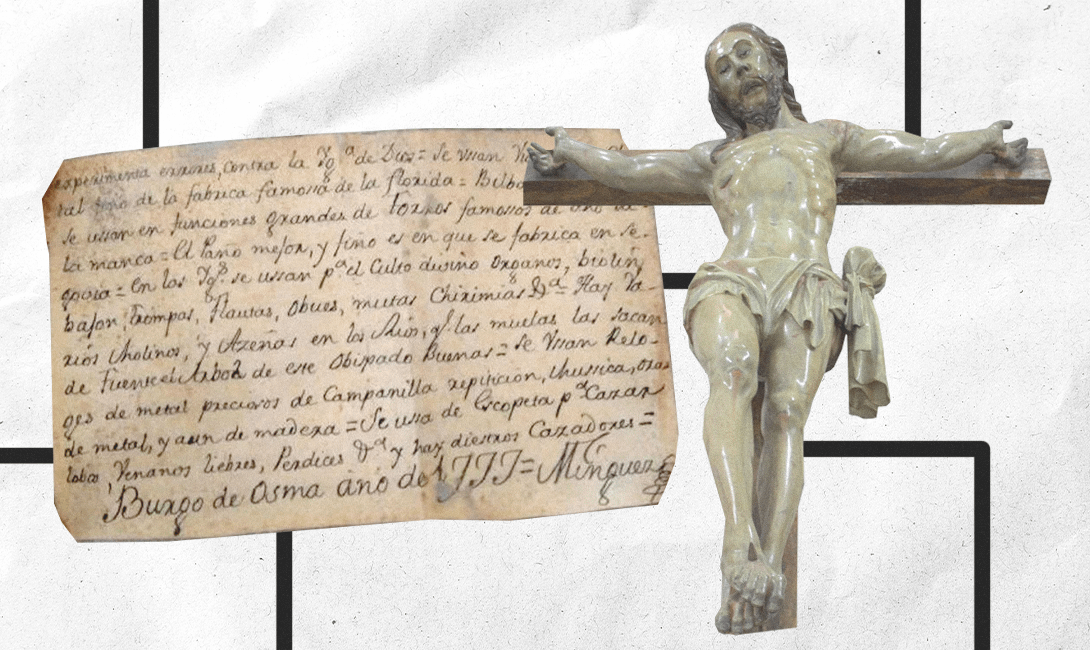 experimenta errores, contra la Yg.ª de Dios = Se vsan
tal de la fabrica famossa de la florida = Bilbo
Se ussan en funciones grandes de toxos famossos de
La mancha = El Paño mejor, y fino es en que se fabrica en Se-
govia = En las Yg.s se ussan p.ª el Culto divino Organos, biolin,
bajon, Trompas, Flautas, Obues, muchas Chirimias &.ª = Hay Va-
rios Molinos, y Azeñas en los Rios, q.e las muelas las sacan
de Fuentelarbol de este Obispado Buenas = Se Vssan Relo-
ges de metal preciosos de Campanilla repiticion, Mussica,
de metal, y aun de madera = Se ussa de Escopeta p.ª Cazar
lobos, Venanos liebres, Perdices &.ª y hay diestros Cazadores =
Burgo de Osma año de 1777 = Minguez